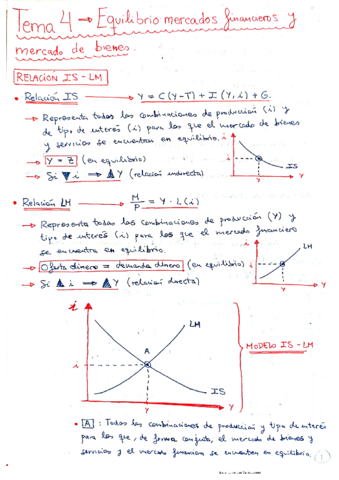 Tema 4 → Equilibrio mercados financieros y
mercado de bienes.
RELACIÓN IS-LM
• Relación IS → Y = C(Y-T) + I(Y,i) + G.
→ Representa todas las combinaciones de producción (i) y
de tipo de interés (i) para los que el mercado de bienes
y servicios se encuentran en equilibrio.
→ Y = Z (en equilibrio)
→ Si ▼ i ⟹ ▲ Y (relación indirecta)
i
IS
Y
Y
• Relación LM → M/P = Y · L(i)
→ Representa todas las combinaciones de producción (Y) y
tipo de interés (i) para los que el mercado financiero
se encuentra en equilibrio.
→ Oferta dinero = demanda dinero (en equilibrio)
→ Si ▲ i ⟹ ▲ Y (relación directa)
LM
i
Y
Y
i
LM
A
i
IS
Y
Y
MODELO IS-LM
• A : Todas las combinaciones de producción y tipo de interés
para los que, de forma conjunta, el mercado de bienes y
servicios y el mercado financiero se encuentran en equilibrio.
1